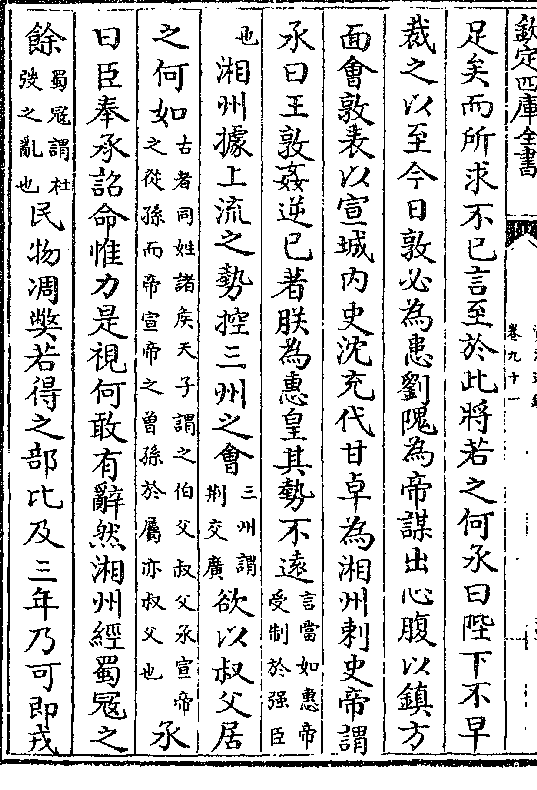 欽定四庫全書
卷九十一
足矣而所求不已言至於此將若之何承曰陛下不早
裁之以至今日敦必為患劉隗為帝謀出心腹以鎮方
面會敦表以宣城内史沈充代甘卓為湘州刺史帝謂
承曰王敦姦逆已著朕為惠皇其勢不遠言當如惠帝受制於强臣
也湘州據上流之勢控三州之會三州謂荆交廣欲以叔父居
之何如古者同姓諸侯天子謂之伯父叔父承宣帝之從孫而帝宣帝之曾孫於屬亦叔父也承
曰臣奉承詔命惟力是視何敢有辭然湘州經蜀冦之
餘蜀冦謂杜弢之亂也民物凋弊若得之部比及三年乃可即戎